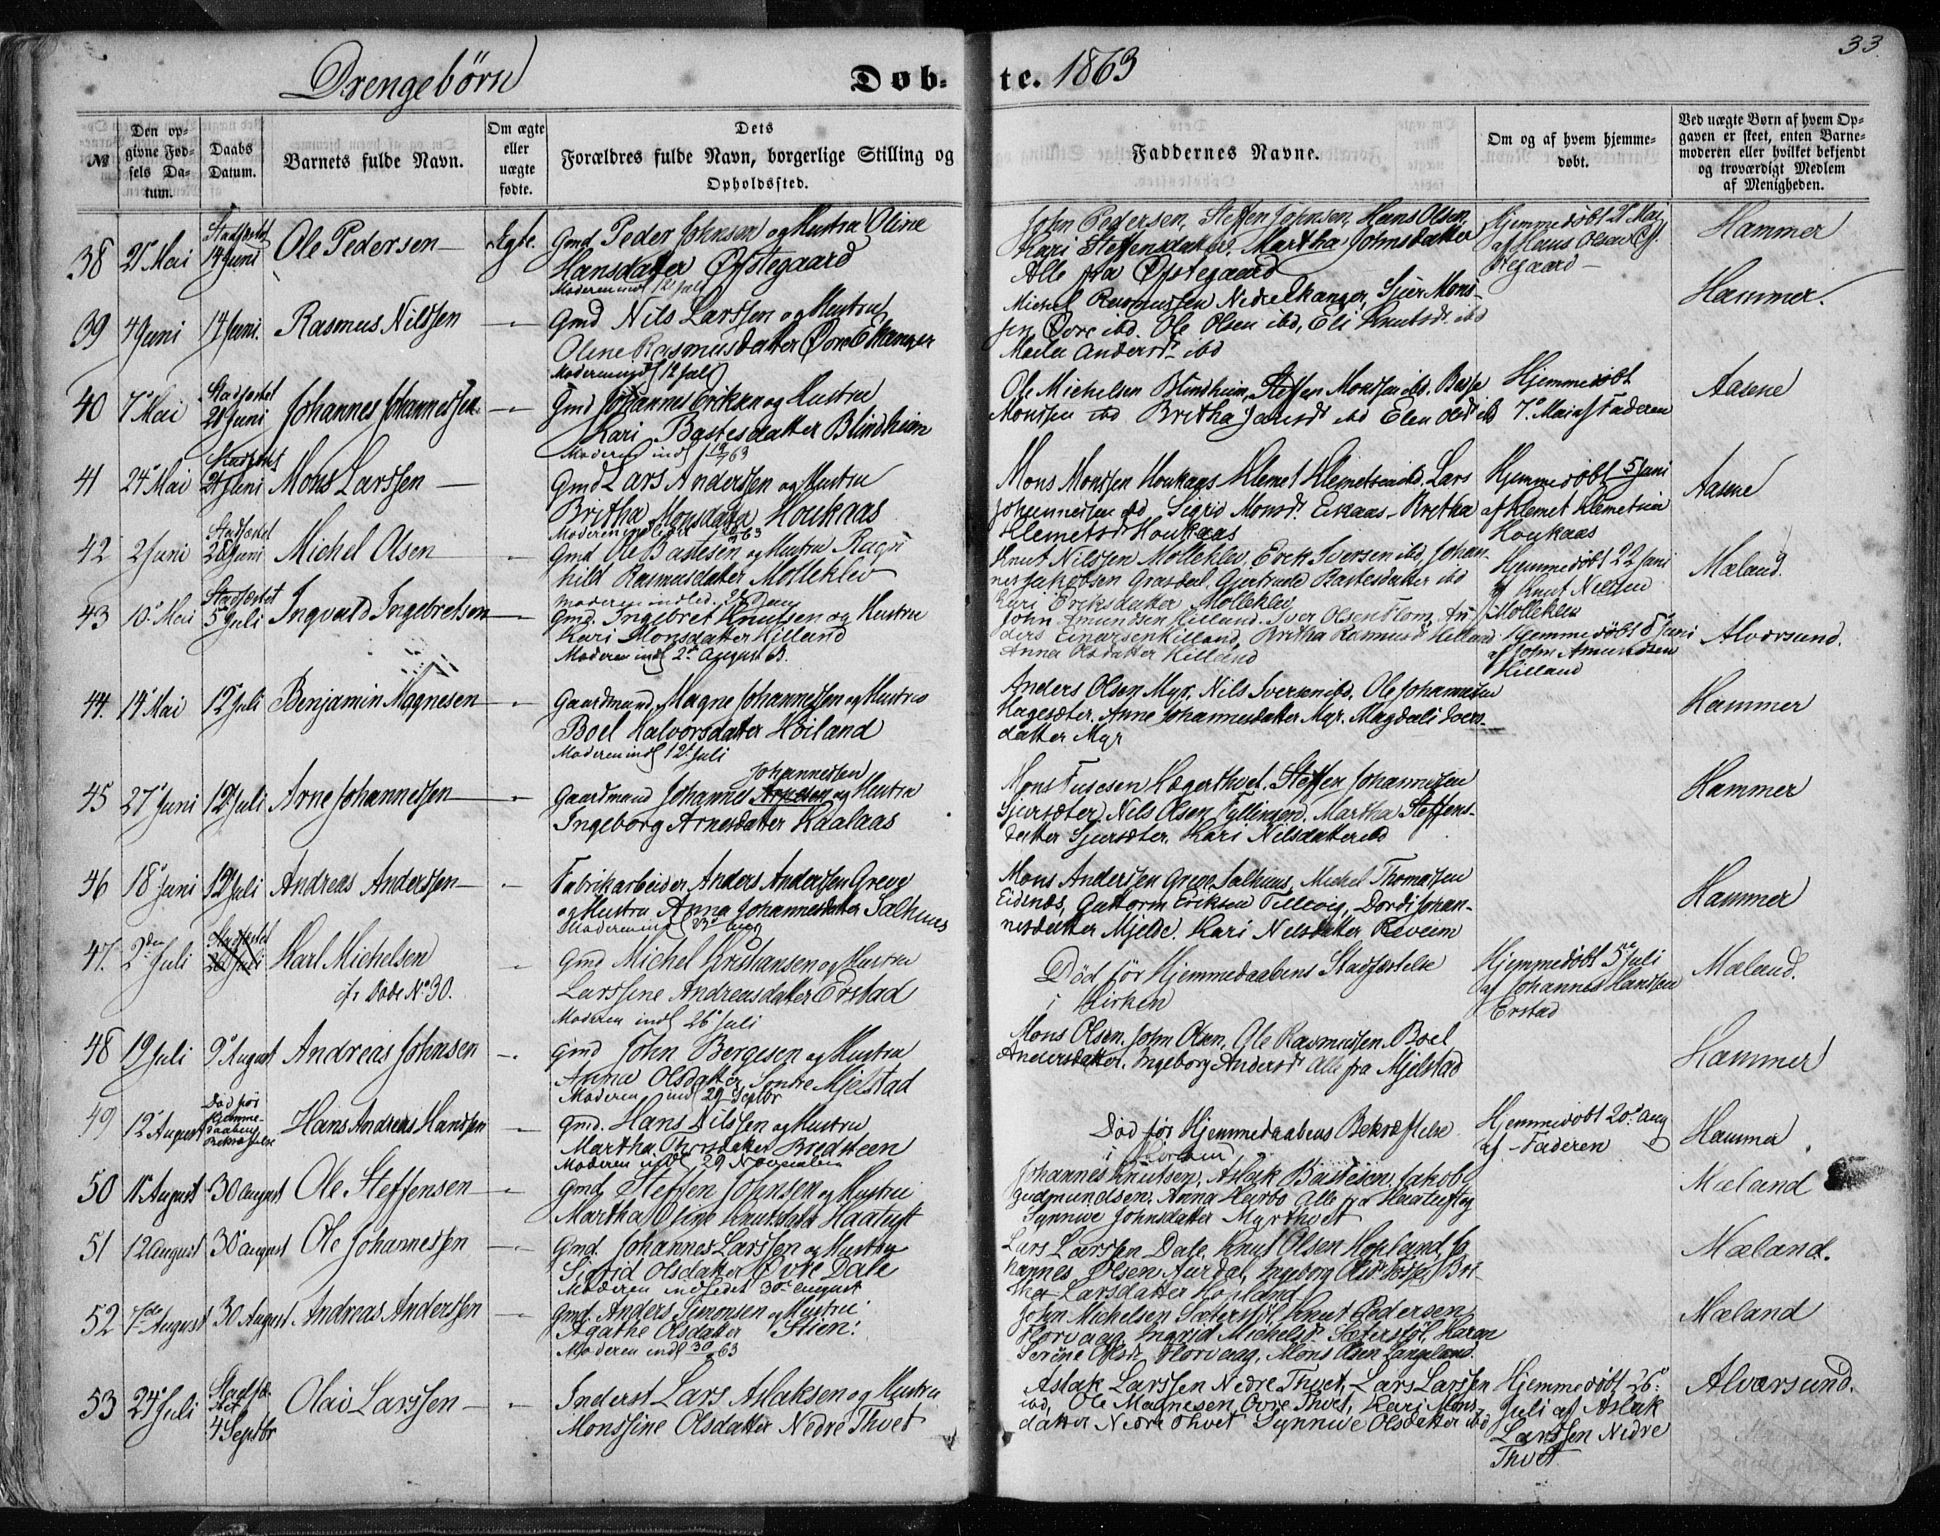 33.
Drengebørn
Døb- te. 1863
№
Den opgivne Fødsels Datum.
Daabs Datum.
Barnets fulde Navn.
Om ægte eller uægte fødte.
Dets Forældres fulde Navn, borgerlige Stilling og Opholdssted.
Faddernes Navne.
Om og af hvem hjemmedøbt.
Ved uægte Børn af hvem Opgaven er skeet, enten Barnemoderen eller hvilket bekjendt og troværdigt Medlem af Menigheden.
38 21 Mai Stadfæstet 14 Juni Ole Pedersen Ægte.
Gmd Peder Johnsen og Hustru Oline
Hansdatter Øvstegaard
Moderen indl 12 Juli
John Pedersen, Steffen Johnsen, Hans Olsen,
Kari Steffensdatter, Martha Johnsdatter
Alle fra Øvstegaard
Hjemmedøbt 21 Mai
af Hans Olsen
Hammer
39 4 Juni 14 Juni. Rasmus Nilssen
Gmd Nils Larssen og Hustru
Oline Rasmusdatter Øvre Ekanger
Moderen indl 12 Juli
Michel Rasmussen Nedre Ekanger, Sjur Mons-
sen Øvre ibd. Ole Olsen ibd, Eli Knutsdr ibd
Anders dr ibd
Hammer.
40 7 Mai Stadfæstet 21 Juni Johannes Johannessen
Gmd Johannes Eriksen og Hustru
Kari Bastesdatter Blindheim
Moderen indl
Ole Michelsen Blindheim, Steffen Monssen ibd. Baste
Monssen ibd Britha ibd Elen Olsdr ibd
Hjemmedøbt
7 Mai af Faderen
Aasne
41 24 Mai Stadfæstet 21 Juni Mons Larssen
Gmd Lars Anderssen og Hustru
Britha Monsdatter Houkaas
Mons Monssen Houkaas Klemet Klemetsen ibd. Lars
Johannessen ibd Sigrid Monsdr. Eikaas Britha
Klemetsdr Houkaas
Hjemmedøbt 5 Juni
af Klemet Klemetsen
Houkaas
Aasne
42 2 Juni Stadfæstet 28 Juni Michel Olsen
Gmd Ole Bastesen og Hustru Ragn
hild Rasmusdatter Molleklev
Knut Nilssen Molleklev, Erik Iversen ibd, Johan-
nes Jakobsen Grasdal, Gjertrud Bastesdatter ibd
Kari Eriksdatter Molleklev
Hjemmedøbt 22 Juni
af Knut Nilssen
Molleklev
Mæland.
43 10 Mai Stadfæstet 5 Juli Ingvald Ingebretsen
Gmd. Ingebret Knutsen og Hustru
Kari Monsdatter Hilland
Moderen indl 2 August 63.
John Amundsen Hilland. Iver Olsen Flom, An
ders Einarsen Hilland, Britha Rasmusdr Hilland
Anna Olsdatter Hilland
Hjemmedøbt 8 Juni
af John Amundsen
Hilland
Alversund.
44. 14 Mai 12 Juli Benjamin Magnesen
Gaardmand Magne Johannessen og Hustru
Boel Halvorsdatter Høiland
Moderen indl 12 Juli
Anders Olsen Myr, Nils Iversen ibd. Ole Johannessen
Hagesæter. Anne Johannesdatter Myr. Magdali Ivers-
datter Myr
Hammer
45 27 Juni 12 Juli Arne Johannessen
Johannessen
Gaardmand Johannes Arnesen og Hustru
Ingeborg Arnesdatter Kaalaas
Mons Hægerthvet. Steffen Johannessen
Sjursæter, Nils Olsen Fyllingen. Martha Steffens-
datter Sjursæter. Kari Nilsdatter ibd
Hammer
46 18 Juni 12 Juli Andreas Anderssen
Fabrikarbeider Anders Anderssen Greve
og Hustru Anna Johannesdatter Salhuus
Moderen indl 23 Aug
Mons Andersen Greve Salhuus, Michel Thomassen
Eidnæs, Guttorm Eriksen Tellevig, Dordi Johan-
nesdatter Mjelde. Kari Nilsdatter
Hammer
47. 2den Juli Stadfæstet 26 Juli Karl Michelsen
cfr Døde No 30.
Gmd Michel Kristiansen og Hustru
Larssine Andreasdatter Erstad
Moderen indl 26 Juli
Død før Hjemmedaabens Stadfæstelse
i Kirken
Hjemmedøbt 5 Juli
af Johannes Hanssen
Erstad
Mæland.
48 19 Juli 9 August Andreas Johnsen
Gmd John Børgesen og Hustru
Anna Olsdatter Søndre Mjelstad
Moderen indl 29 Septbr
Mons Olsen, John Olsen, Ole Rasmussen, Boel
Andersdatter, Ingeborg Andersdr Alle fra Mjelstad
Hammer
49 12 August Død før Hjemmedaabens Bekræftelse Hans Andreas Hanssen
Gmd. Hans Nilssen og Hustru
Martha Bredsteen
Moderen indl 29 November
Død før Hjemmedaabens Bekræftelse
i Kirken
Hjemmedøbt 20 Aug
af Faderen
Hammer
50 11 August 30 August Ole Steffensen
Gmd Steffen Johnsen og Hustru
Martha Oline Knutsdatter Haatuft
Johannes Knutsen, Aslak Bastesen. Jakob
Gudmundsen. Anna alle fra Haatuft og
Synnive Johnsdatter Myrthvet
Mæland
51 12 August 30 August Ole Johannessen
Gmd. Johannes Larssen og Hustru
Sigrid Olsdatter Øvre Dale
Moderen indledet 30 August
Lars Larssen Dale. Knut Olsen Hopland, Jo
hannes Olsen Aurdal, Ingeborg Olsdr ibd, Bri-
tha Larsdatter Hopland
Mæland.
52 7de August 30 August Andreas Anderssen
Gmd. Anders Simonsen og Hustru
Agathe Olsdatter Stien.
Moderen indl 30/8 63
John Michelsen Sæterstøl, Knut Pedersen
Florvaag, Ingrid Michelsdr Sæterstøl, Karen
Serine Olsdr Florvaag, Mons Olsen Langeland.
Mæland
53 24 Juli Stadfæstet 4 Septbr Olai Larssen
Inderst Lars Aslaksen og Hustru
Monssine Olsdatter Nedre Thvet
Aslak Larssen Nedre Thvet, Lars Larssen
ibd, Ole Magnesen, Øvre Thvet, Kari Mons-
datter Nedre Thvet Synnive Olsdatter ibd
Hjemmedøbt 26
Juli af Aslak
Larssen Nedre
Thvet
Alversund.